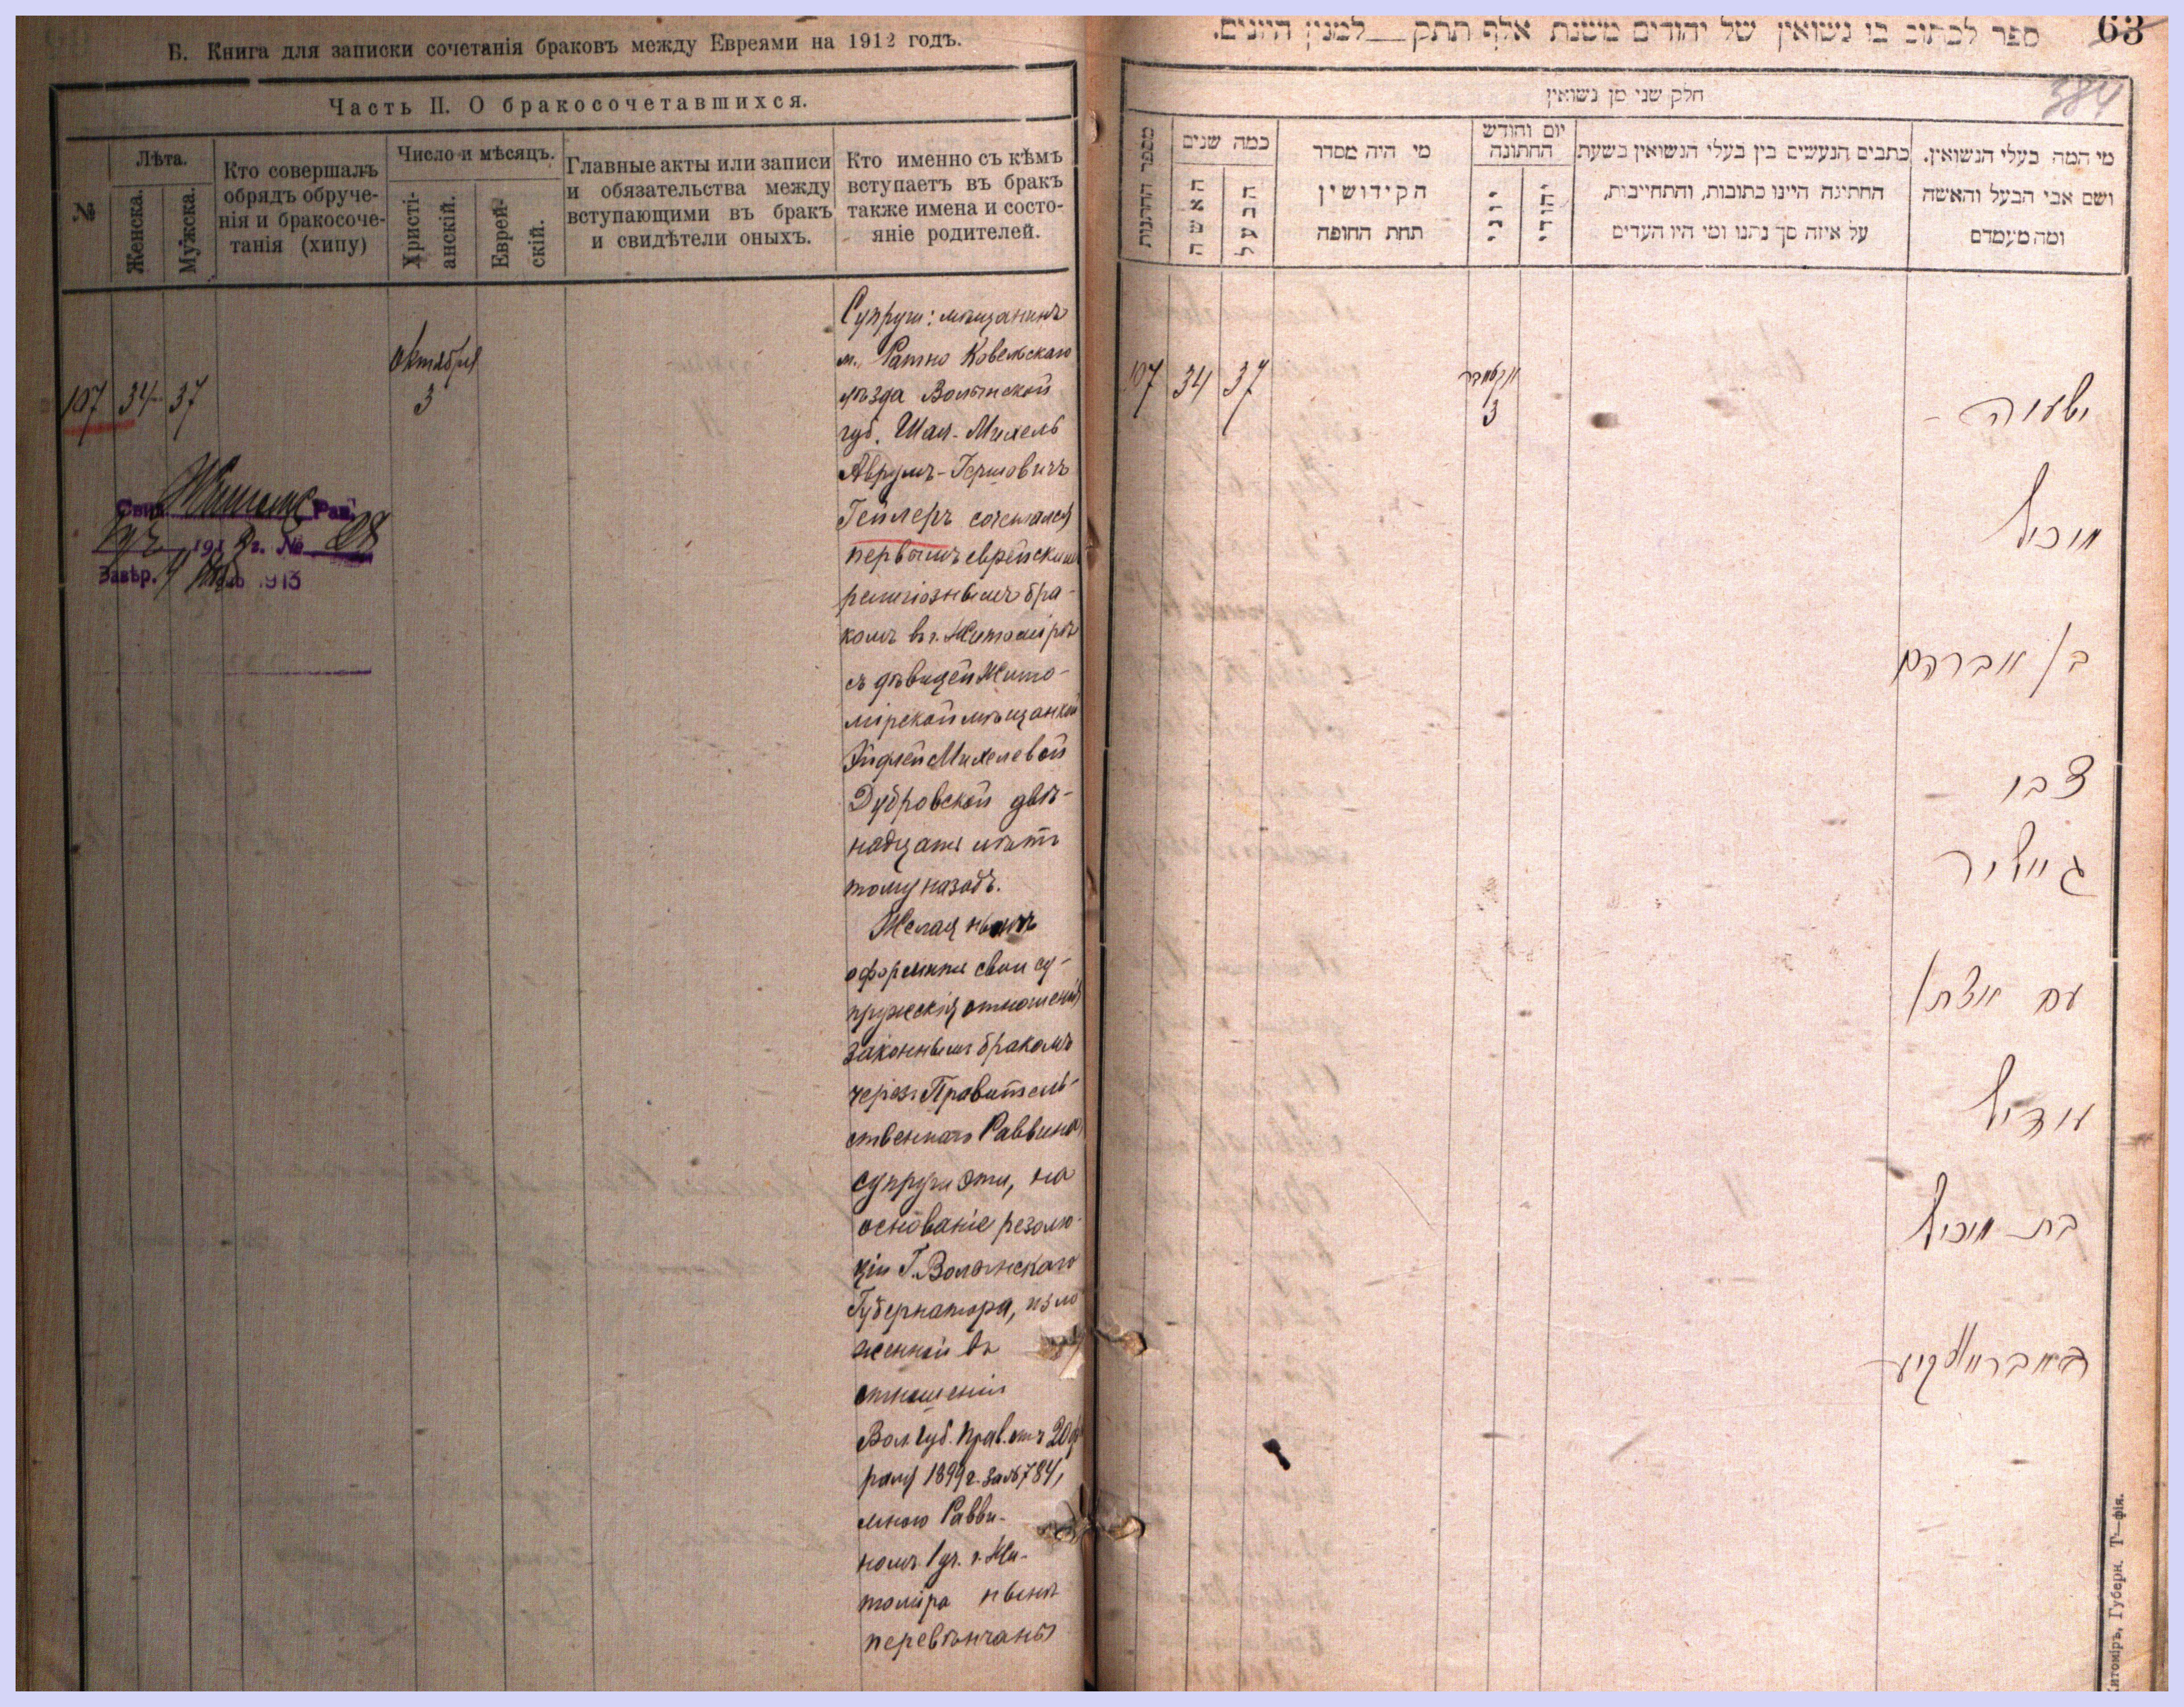 Б. Книга для записки сочетанія браковъ между Евреями на 1912 годъ.
Часть II. О бракосочетавшихся.
№
Лѣта.
Женска.
Мужска.
Кто совершалъ
обрядъ обруче-
нія и бракосоче-
танія (хипу)
Число и мѣсяцъ.
Христі-
анскій.
Еврей-
скій.
Главные акты или записи
и обязательства между
вступающими въ бракъ
и свидѣтели оныхъ.
Кто именно съ кѣмъ
вступаетъ въ бракъ
также имена и состо-
яніе родителей.
107 34 37
Октября
3
Свид. Рав.
191 г. № 28
Завѣр. 1913
Супруги: мѣщанинъ
м. Ратно Ковельскаго
уѣзда Волынской
губ. Шая-Михель
Аврумъ-Гершовичъ
Гейлеръ сочетался
первымъ еврейскимъ
религіознымъ бра-
комъ въ г. Житомірѣ
съ дѣвицей Жито-
мірской мѣщанкой
Эйдлей Михелевой
Дубровской двѣ-
надцать лѣтъ
тому назадъ.
Желая нынѣ
оформить свои су-
пружескія отношенія
законнымъ бракомъ
через Правитель-
ственнаго Раввина
супруги эти, на
основаніе резолю-
ціи Г. Волынскаго
Губернатора, изло
женной въ
отношеніи
Вол. Губ. Прав. отъ 20 фе
раля 1899 г. за № 784,
мною Равви-
номъ 1 уч. г. Жи-
томіра нынѣ
перевѣнчаны
ספר לכתוב בו נשואין של יהודים משנת אלף תתק למנין היונים.
63
384
חלק שני מן נשואין
מספר החתונות
כמה שנים
האשה
הבעל
מי היה מסדר
הקידושין
תחת החופה
יום וחודש
החתונה
יוני
יהודי
כתבים הנעשים בין בעלי הנשואין בשעת
החתונה היינו כתובות, והתחייבות,
על איזה סך נתנו ומי היו העדים
מי המה בעלי הנשואין.
ושם אבי הבעל והאשה
ומה מעמדם
107 34 37
אקטאבר
3
ישעיה
מיכיל
בן אברהם
צבי
גיילער
עם
אידיל
בת מיכיל
דובראווסקיע
Житоміръ, Губерн. Т—фія.